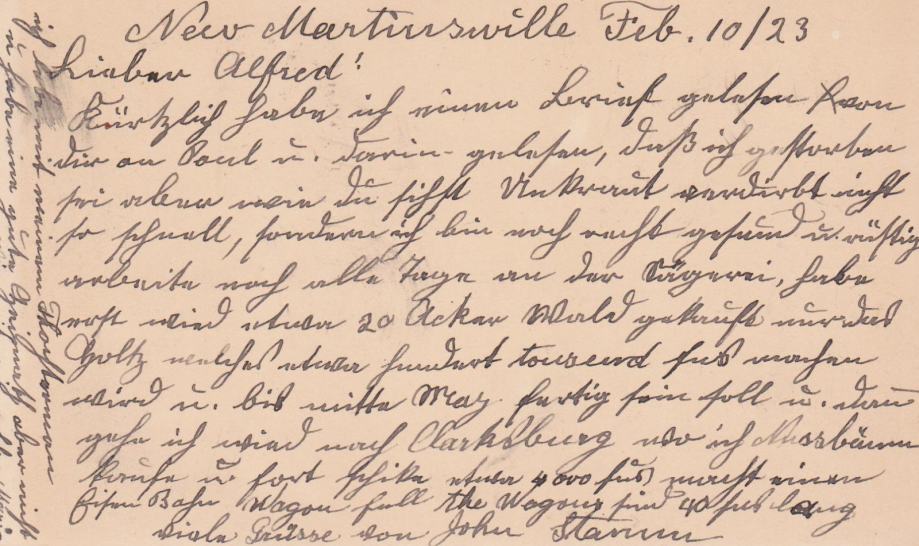 New Martinswille Feb. 10/23
Lieber Alfred!
Kürtzlich habe ich einen Brief gelesen von
dir an Paul u. darin gelesen, daß ich gestorben
sei aber wie du sihst Unkraut verdirbt nicht
so schnell, sondern ich bin noch recht gesund u. rüstig
arbeite noch alle Tage an der Sägerei, habe
erst wied etwa 20 Acker Wald gekauft nur das
Holtz welches etwa hundert tousend fus machen
wird u. bis mitte May fertig sein soll u. dan
gehe ich wied nach Clarksburg wo ich Nussbäum
kaufe u. fort schike etwa 4000 fus macht einen
Eisen Bahn Wagon full the Wagons sind 40 fus lang
viele Grüsse von John Stamm
ich meinem
u habe eine gute aber nicht